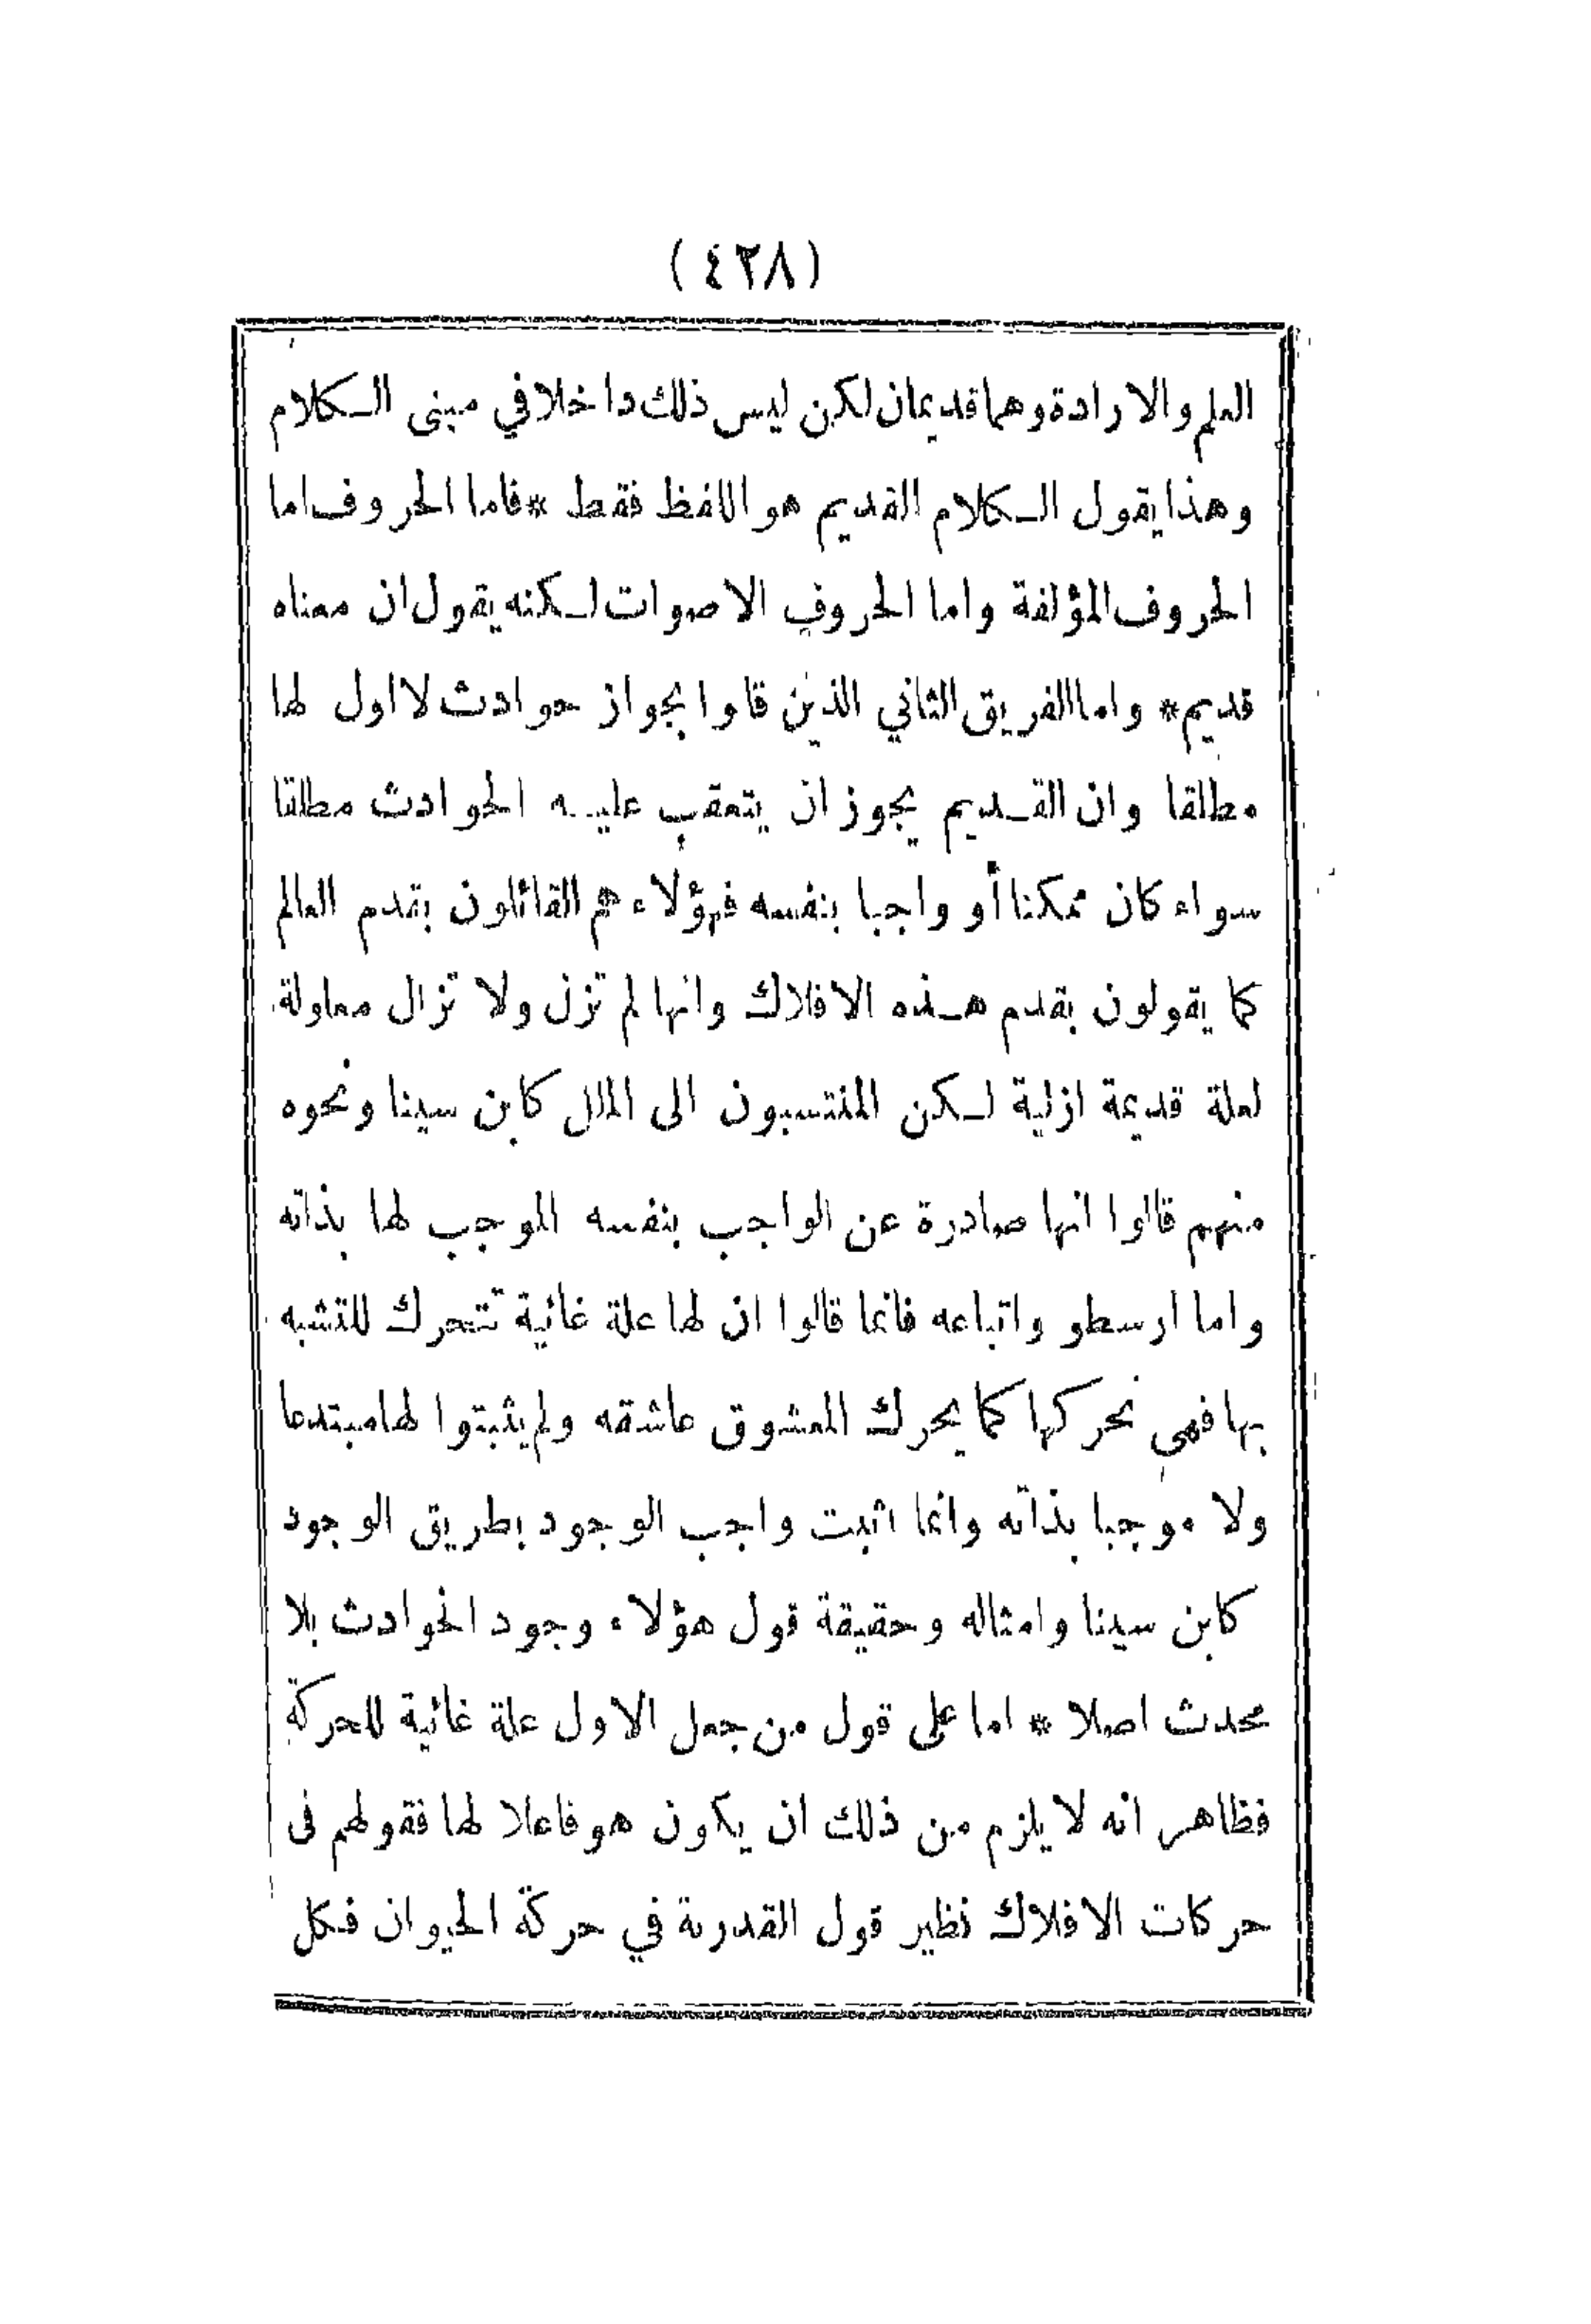 (٤٢٨)
العلم والارادة وهما قديمان لكن ليس ذلك داخلا في مبنى الكلام
وهذا يقول الكلام القديم هو اللفظ فقط * فاما الحروف اما
الحروف المؤلفة واما الحروف الاصوات لكنه يقول ان معناه
قديم * واما الفريق الثاني الذين قاوا بجواز حوادث لا اول لها
مطلقا وان القديم يجوز ان يتعقب عليه الحوادث مطلقا
سواء كان ممكنا أو واجبا بنفسه فهؤلاء هم القائلون بقدم العالم
كما يقولون بقدم هذه الافلاك وانها لم تزل ولا تزال معلولة
لعلة قديمة ازلية لكن المنتسبون الى الملل كابن سينا ونحوه
منهم قالوا انها صادرة عن الواجب بنفسه الموجب لها بذاته
واما ارسطو واتباعه فانما قالوا ان لها علة غائية تتحرك للتشبه
بها فهي تحركها كما يحرك المعشوق عاشقه ولم يثبتوا لها مبتدعا
ولا موجبا بذاته وانما اثبت واجب الوجود بطريق الوجود
كابن سينا وامثاله وحقيقة قول هؤلاء وجود الحوادث بلا
محدث اصلا * اما على قول من جعل الاول علة غائية للحركة
فظاهر انه لا يلزم من ذلك ان يكون هو فاعلا لها فقولهم فى
حركات الافلاك نظير قول القدرية في حركة الحيوان فكل